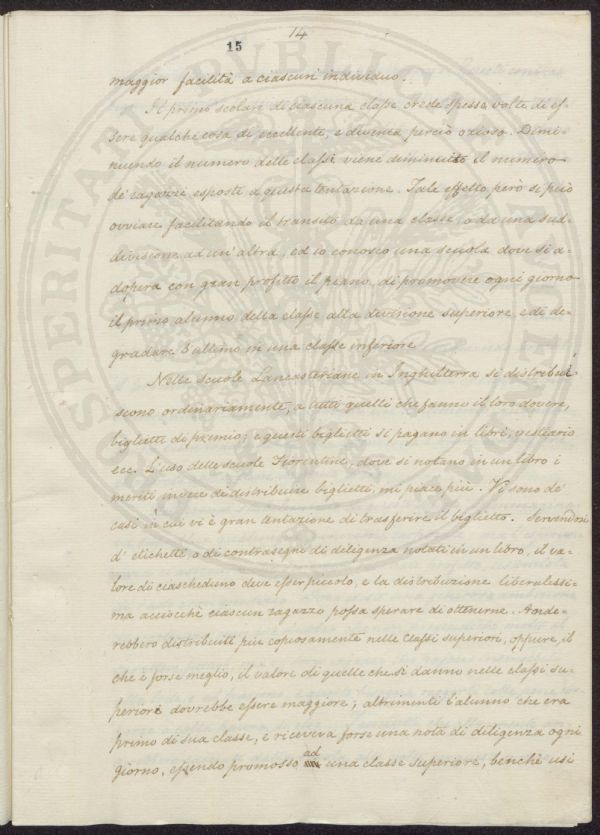 14
15
maggior facilità a ciascun individuo.
Il primo scolare di ciascuna classe crede spesse volte di es-
sere qualche cosa di eccellente, e diventa perciò ozioso. Dimi-
nuendo il numero delle classi viene diminuito il numero
de' ragazzi esposti a questa tentazione. Tale effetto però si può
ovviare facilitando il transito da una classe, o da una sud-
divisione ad un'altra, ed io conosco una scuola dove si a-
dopera con gran profitto il piano, di promovere ogni giorno
il primo alunno della classe alla divisione superiore, e di de-
gradare l'ultimo in una classe inferiore
Nelle scuole Lancasteriane in Inghilterra si distribui
scono ordinariamente, a tutti quelli che fanno il loro dovere,
biglietti di premio; e questi biglietti si pagano in libri, vestiario
ecc. L'uso delle scuole Fiorentine, dove si notano in un libro i
meriti invece di distribuire biglietti, mi piace più. Vi sono de'
casi in cui vi è gran tentazione di trasferire il biglietto. Servendosi
d' etichette o di contrasegni di diligenza notati in un libro, il va-
lore di ciascheduno deve esser piccolo, e la distribuzione liberalessi-
ma acciocchè ciascun ragazzo possa sperare di ottenerne. Ande-
rebbero distribuiti più copiosamente nelle classi superiori, oppure, il
che è forse meglio, il valore di quelle che si danno nelle classi su-
periori dovrebbe essere maggiore; altrimenti l'alunno che era
primo di sua classe, e riceveva forse una nota di diligenza ogni
giorno, essendo promosso ad una classe superiore, benchè usi